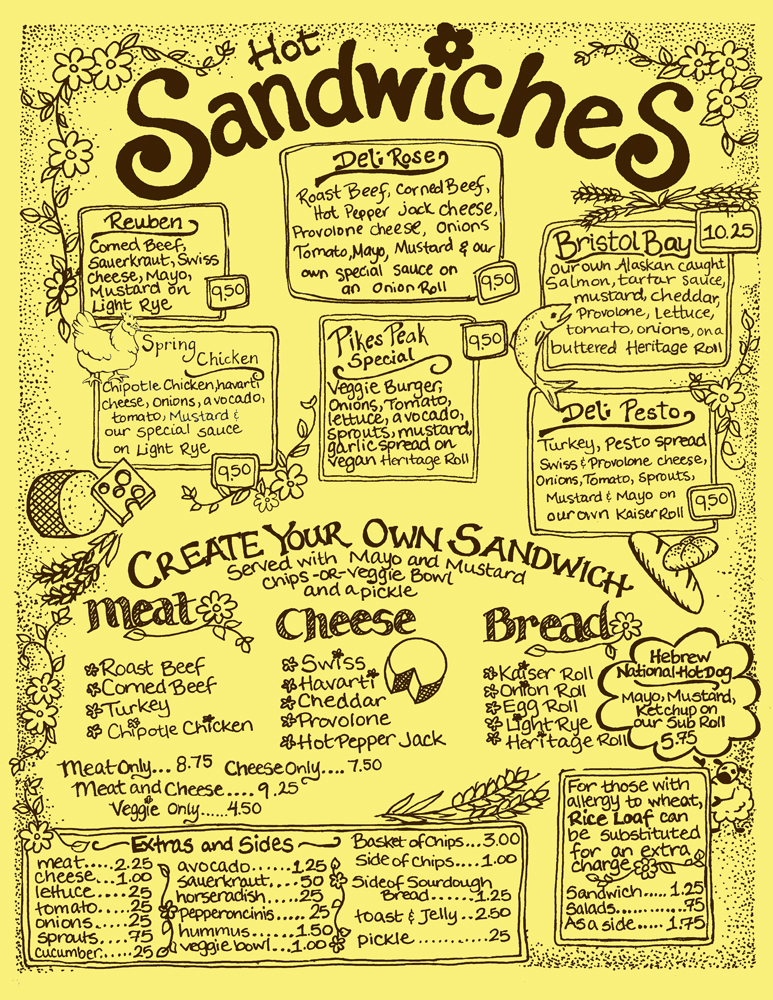 Hot
Sandwiches
Deli Rose
Roast Beef, Corned Beef,
Hot Pepper Jack cheese,
Provolone cheese, Onions
Tomato, Mayo, Mustard & our
own special sauce on
an Onion Roll
9.50
Reuben
Corned Beef,
Sauerkraut, Swiss
cheese, Mayo,
Mustard on
Light Rye
9.50
Bristol Bay
10.25
our own Alaskan caught
Salmon, tartar sauce,
mustard, cheddar,
Provolone, Lettuce,
tomato, onions, on a
buttered Heritage Roll
Spring
Chicken
Chipotle Chicken, havarti
cheese, Onions, avocado,
tomato, Mustard &
our special sauce
on Light Rye
9.50
Pikes Peak
Special
9.50
Veggie Burger,
Onions, Tomato,
lettuce, avocado,
sprouts, mustard,
garlic spread on
vegan Heritage Roll
Deli Pesto
Turkey, Pesto spread
Swiss & Provolone cheese,
Onions, Tomato, Sprouts,
Mustard & Mayo on
our own Kaiser Roll
9.50
Create Your Own Sandwich
Served with Mayo and Mustard
Chips -OR- Veggie Bowl
and a pickle
Meat
Roast Beef
Corned Beef
Turkey
Chipotle Chicken
Cheese
Swiss
Havarti
Cheddar
Provolone
Hot Pepper Jack
Bread
Kaiser Roll
Onion Roll
Egg Roll
Light Rye
Heritage Roll
Hebrew
National Hot Dog
Mayo, Mustard,
Ketchup on
our Sub Roll
5.75
Meat Only... 8.75 Cheese Only.... 7.50
Meat and Cheese.... 9.25
Veggie Only......4.50
Extras and Sides
meat.....2.25
cheese...1.00
lettuce.....25
tomato.....25
onions.....25
sprouts....75
cucumber.....25
avocado......1.25
sauerkraut....50
horseradish....25
pepperoncinis.....25
hummus......1.50
veggie bowl...1.00
Basket of Chips...3.00
Side of Chips....1.00
Side of Sourdough
Bread......1.25
toast & Jelly..2.50
pickle..........25
For those with
allergy to wheat,
Rice Loaf can
be substituted
for an extra
charge
Sandwich..... 1.25
Salads..........75
As a side.....1.75